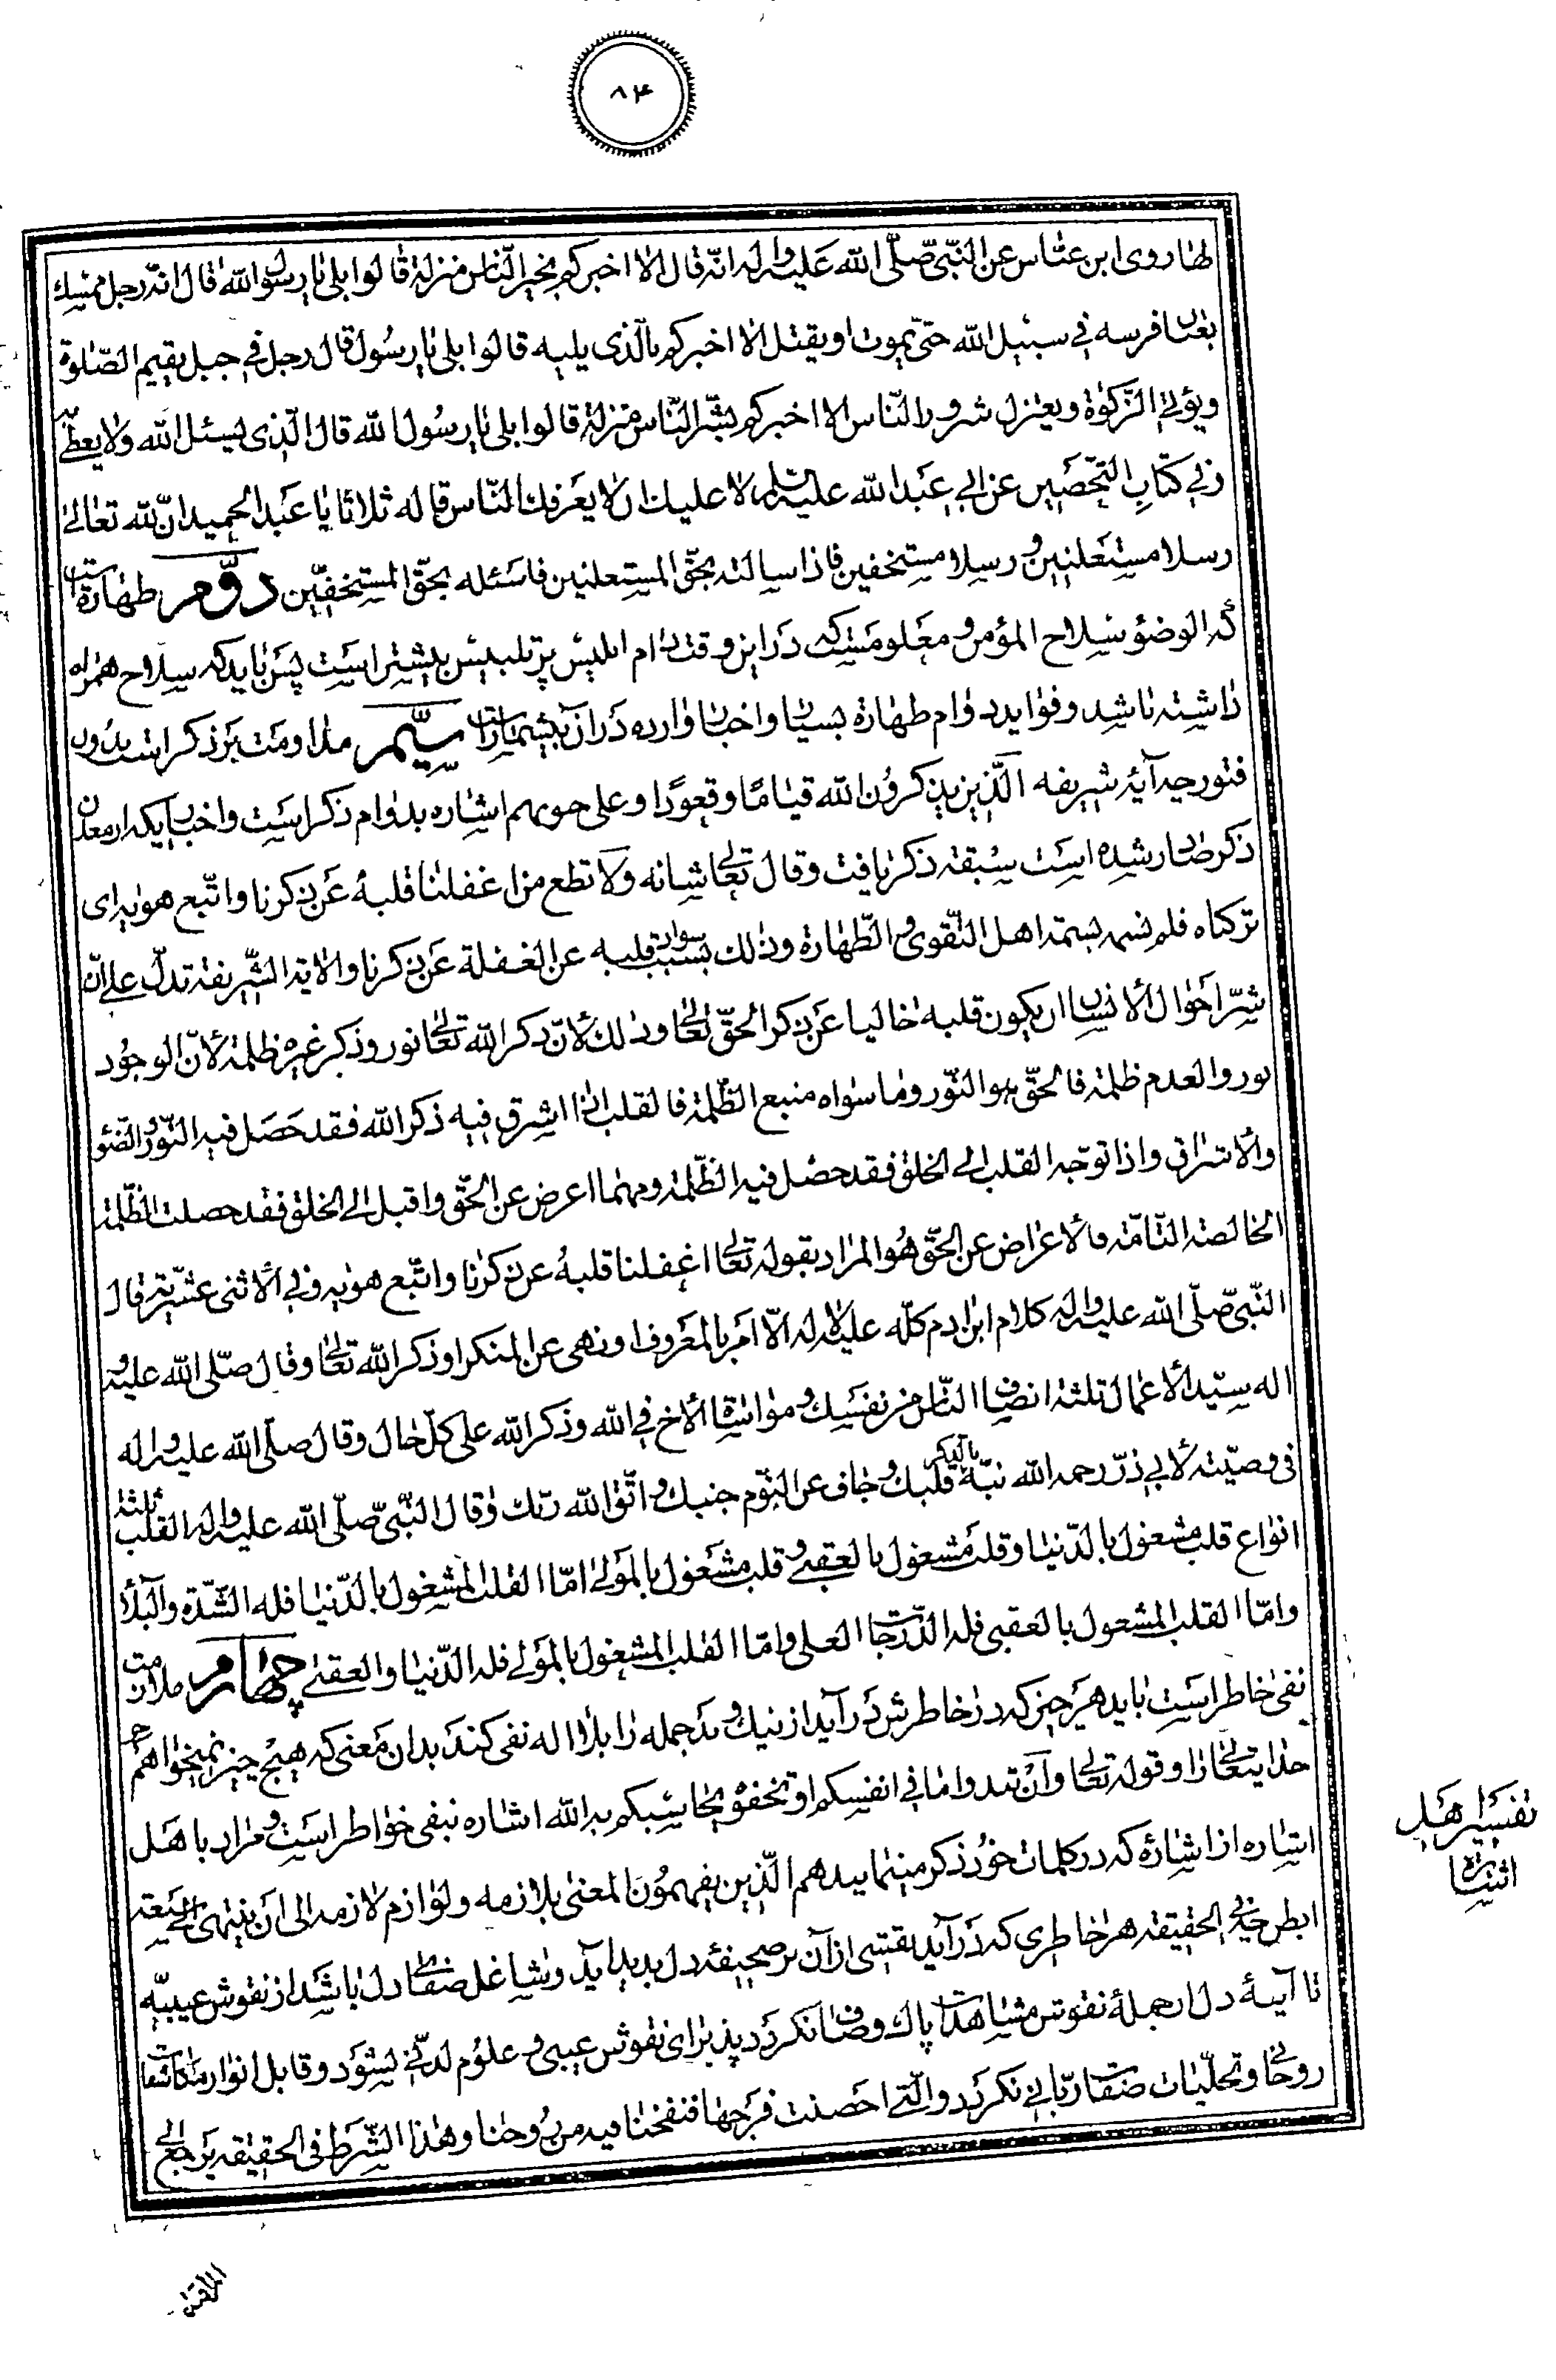 ۸۴
لها روی ابن عبّاس عن النّبیّ صلّی الله علیه واله انّه قال الا اخبرکم بخیر النّاس منزلة قالوا بلی یا رسول الله قال انّه رجل ممسک
بعنان فرسه فی سبیل الله حتّی یموت او یقتل الا اخبرکم بالّذی یلیه قالوا بلی یا رسول قال رجل فی جبل یقیم الصّلوة
ویؤتی الزّکوة ویعتزل شرور النّاس الا اخبرکم بشرّ النّاس منزلة قالوا بلی یا رسول الله قال الّذی یسئل الله ولا یعطی
وفی کتاب التحصین عن ابی عبد الله علیه السلام لا علیک ان لا یعرفک النّاس قاله ثلاثا یا عبد الحمید انّ لله تعالی
رسلا مستعلنین و رسلا مستخفین فاذا سالته بحقّ المستعلنین فاسئله بحقّ المستخفیّن دوّم طهارة است
که الوضؤ سلاح المؤمن و معلومست که در این وقت دام ابلیس پر تلبیس بیشتر است پس باید که سلاح همراه
داشته باشد وفواید دوام طهارة بسیار و اخبار وارده در آن بیشمار است سیّم مداومت بر ذکر است بدون
فتور چه آیهٔ شریفه الّذین یذکرون الله قیاما و قعودا و علی جوبهم اشاره بدوام ذکر است و اخباریکه از معدن
ذکر صادر شده است سبقت ذکر یافت وقال تعالی شانه ولا تطع من اغفلنا قلبه عن ذکرنا واتّبع هویه ای
ترکناه فلم نسمه بسمة اهل التّقوی و الطّهارة وذلک بسبب قلبه عن الغفلة عن ذکرنا والایة الشّریفة تدلّ علی انّ
شرّ احوال الأنسان ان یکون قلبه خالیا عن ذکر الحقّ تعالی وذلک لأنّ ذکر الله تعالی نور وذکر غیره ظلمة لأنّ الوجود
نور والعدم ظلمة فالحقّ هو النّور وما سواه منبع الظّلمة فالقلب اذا اشرق فیه ذکر الله فقد حصل فیه النّور والضّؤ
والأشراق واذا توجّه القلب الی الخلق فقد حصل فیه الظّلمة ومهما اعرض عن الحقّ واقبل الی الخلق فقد حصلت الظّلمة
الخالصة التّامّة فالأعراض عن الحقّ هو المراد بقوله تعالی اغفلنا قلبه عن ذکرنا واتّبع هویه وفی الأثنی عشریّة قال
النّبی صلّی الله علیه واله کلام ابن ادم کلّه علیه لا له الّا امر بالمعروف او نهی عن المنکر او ذکر الله تعالی وقال صلّی الله علیه و
اله سیّد الأعمال ثلثة انصاف النّاس من نفسک و مواساة الأخ فی الله وذکر الله علی کلّ حال وقال صلّی الله علیه واله
فی وصیّته لأبی ذرّ رحمه الله نبّه بالتفکر قلبک و جاف عن النّوم جنبک و اتّق الله ربّک وقال النّبیّ صلّی الله علیه واله القلب ثلثة
انواع قلب مشغول بالدّنیا و قلب مشغول بالعقبی و قلب مشغول بالمولی امّا القلب المشغول بالدّنیا فله الشّدّة والبلأ
وامّا القلب المشغول بالعقبی فله الدّرجات العلی وامّا القلب المشغول بالمولی فله الدّنیا والعقبی چهارم ملازمت
نفی خاطر است باید هر چیز که در خاطرش در آید از نیک و بد جمله را بلا اله نفی کند بدان معنی که هیچ چیز نمیخواهم جز
خدایتعالی را و قوله تعالی وان تبدوا ما فی انفسکم او تخفوه یحاسبکم به الله اشاره بنفی خواطر است و مراد باهل
اشاره از اشارهٔ که در کلمات خود ذکر مینمایند هم الّذین یفهمون المعنی بلازمه ولوازم لازمه الی ان ینتهی الی سبعة
ابطن فی الحقیقة هر خاطری که در آید نقشی از آن بر صحیفهٔ دل پدید آید و شاغل صفای دل باشد از نقوش غیبیّه
تا آینهٔ دل از جملهٔ نقوش مشاهدات پاک و صاف نگردد پذیرای نقوش غیبی و علوم لدنّی نشود و قابل انوار مکاشفات
روحانی و تجلّیات صفات ربّانی نگردد والّتی احصنت فرجها فنفخنا فیه من روحنا وهذا الشّرط فی الحقیقه یرجع الی
تفسیر اهل
اشاره